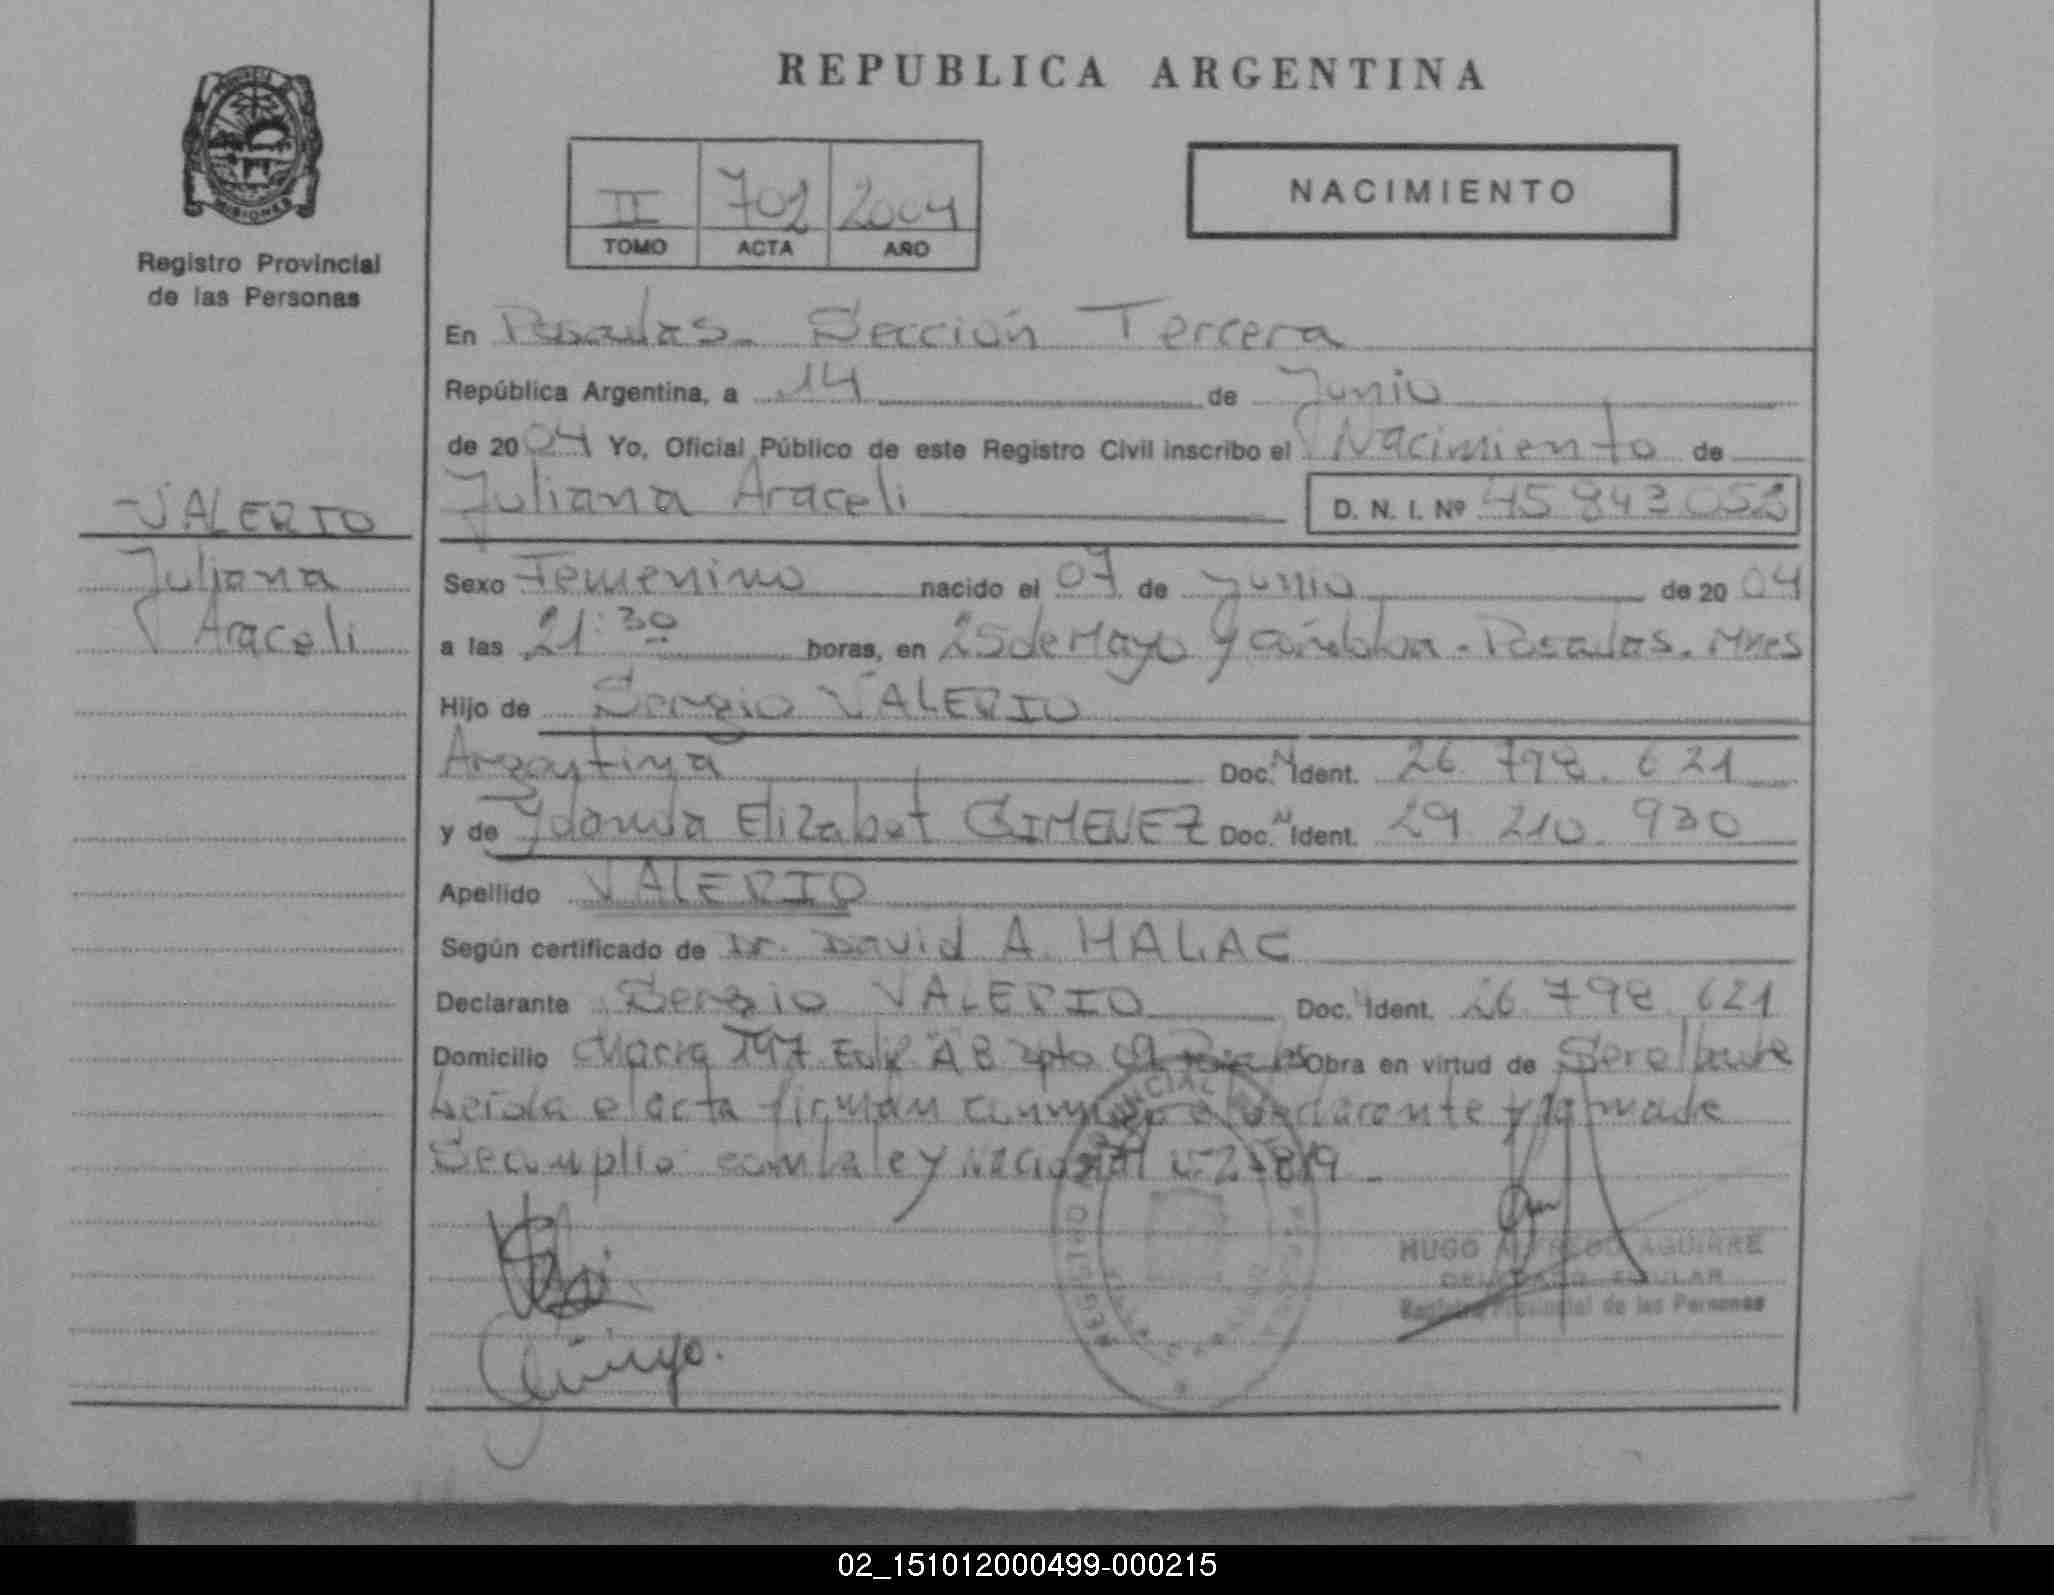 REPUBLICA ARGENTINA
MISIONES
Registro Provincial
de las Personas
II 702 2004
TOMO ACTA AÑO
NACIMIENTO
En Posadas. Sección Tercera
República Argentina, a 14 de Junio
de 2004 Yo, Oficial Público de este Registro Civil inscribo el Nacimiento de
Juliana Araceli D. N. I. Nº 45 843 053
VALERIO
Juliana
Araceli
Sexo Femenino nacido el 07 de Junio de 2004
a las 21:30 horas, en 25 de Mayo y Córdoba - Posadas. Mnes
Hijo de Sergio VALERIO
Argentina Doc. N Ident. 26. 798. 621
y de Yolanda Elizabet GIMENEZ Doc. N Ident. 29. 210. 930
Apellido VALERIO
Según certificado de Dr. David A. HALAC
Declarante Sergio VALERIO Doc. Ident. 26. 798. 621
Domicilio Chacra 147 Edif. A B Obra en virtud de
Leída el acta firman conmigo el declarante y la madre
Se cumplió con la ley Nacional
HUGO ALFREDO AGUIRRE
DELEGADO TITULAR
Registro Provincial de las Personas
02_151012000499-000215